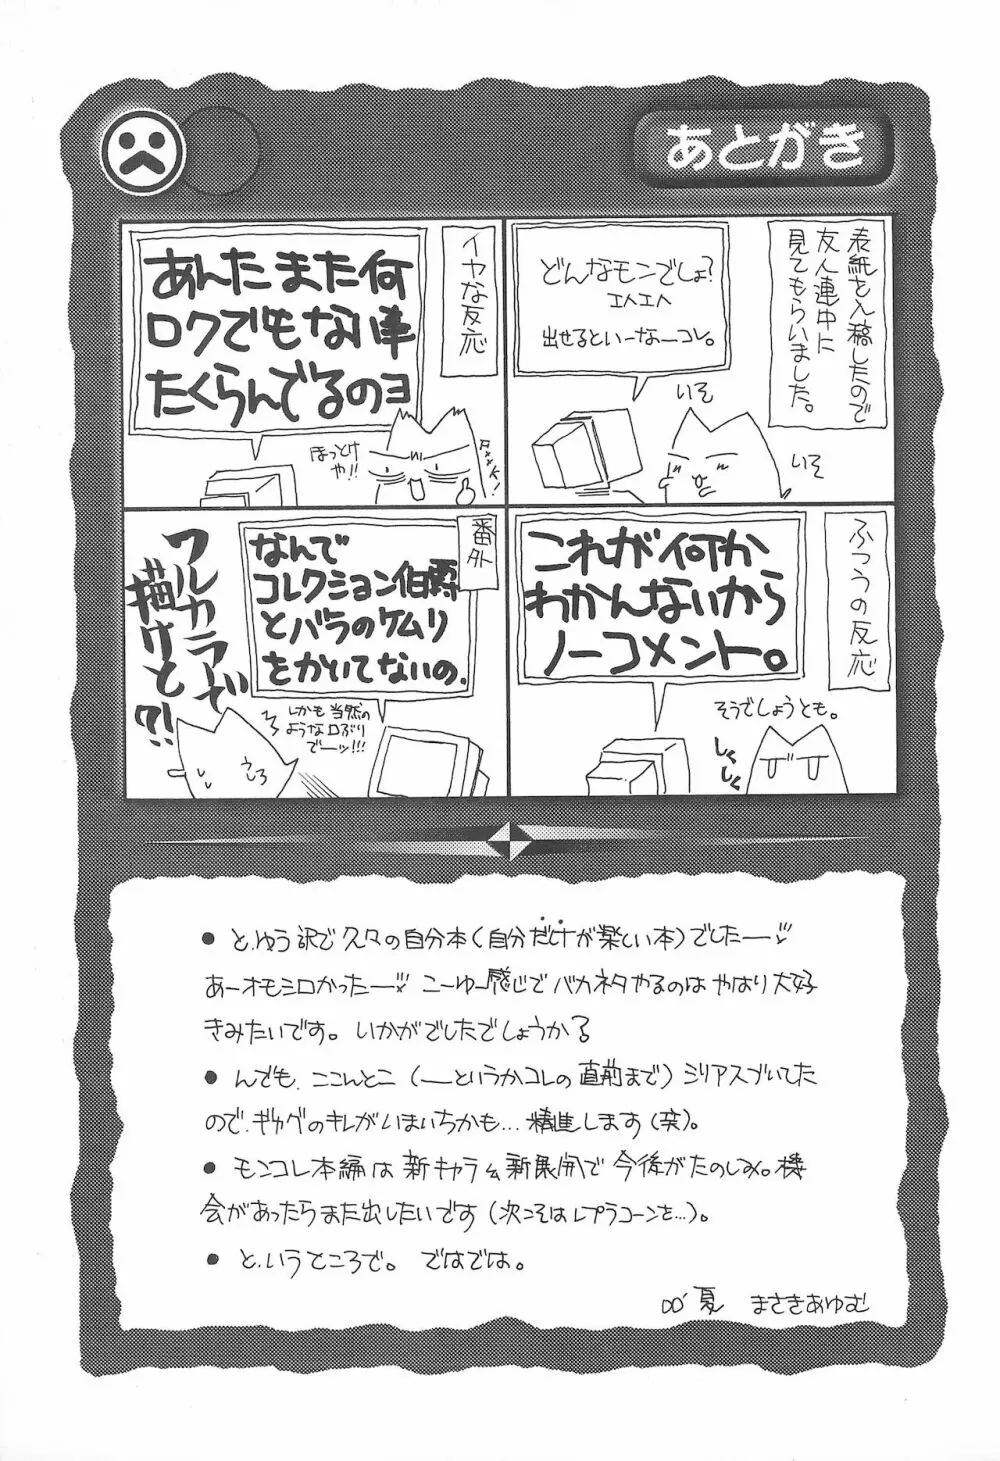 あとがき
表紙を入稿したので
友人連中に
見てもらいました。
どんなモンでしょ?
エヘエヘ
出せるといーなーコレ。
いそ
いそ
イヤな反応
あんたまた何
ロクでもない事
たくらんでるのヨ
ほっとけ
や!!
ふつうの反応
これが何か
わかんないから
ノーコメント。
そうでしょうとも。
しくしく
番外
なんで
コレクション伯爵
とバラのケムリ
をかいてないの.
しかも当然の
ような口ぶり
でーッ!!!
フルカラーで
描けと?!
●と.ゆう訳で久々の自分本(自分だけが楽しい本)でしたー♡
あーオモシロかったー♡ こーゆー感じでバカネタやるのはやはり大好
きみたいです。いかがでしたでしょうか?
●んでも.ここんとこ(ーというかコレの直前まで)シリアスづいてした
ので.ギャグのキレがいまいちかも...精進します(笑)。
●モンコレ本編は新キャラ&新展開で今後がたのしみ。機
会があったらまた出したいです(次こそはレプラコーンを...)。
●と.いうところで。ではでは。
00'夏 まさきあゆむ